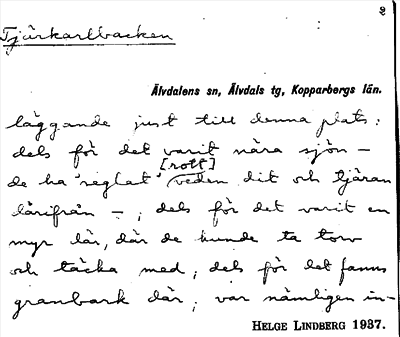 2
Tjärkarlbacken
Älvdalens sn, Älvdals tg, Kopparbergs län.
läggande just till denna plats:
dels för det varit nära sjön –
[rott]
de ha "seglat" veden dit och tjäran
därifrån –, dels för det varit en
myr där, där de kunde ta torv
och täcka med, dels för det fanns
granbark där; var nämligen in-
HELGE LINDBERG 1937.